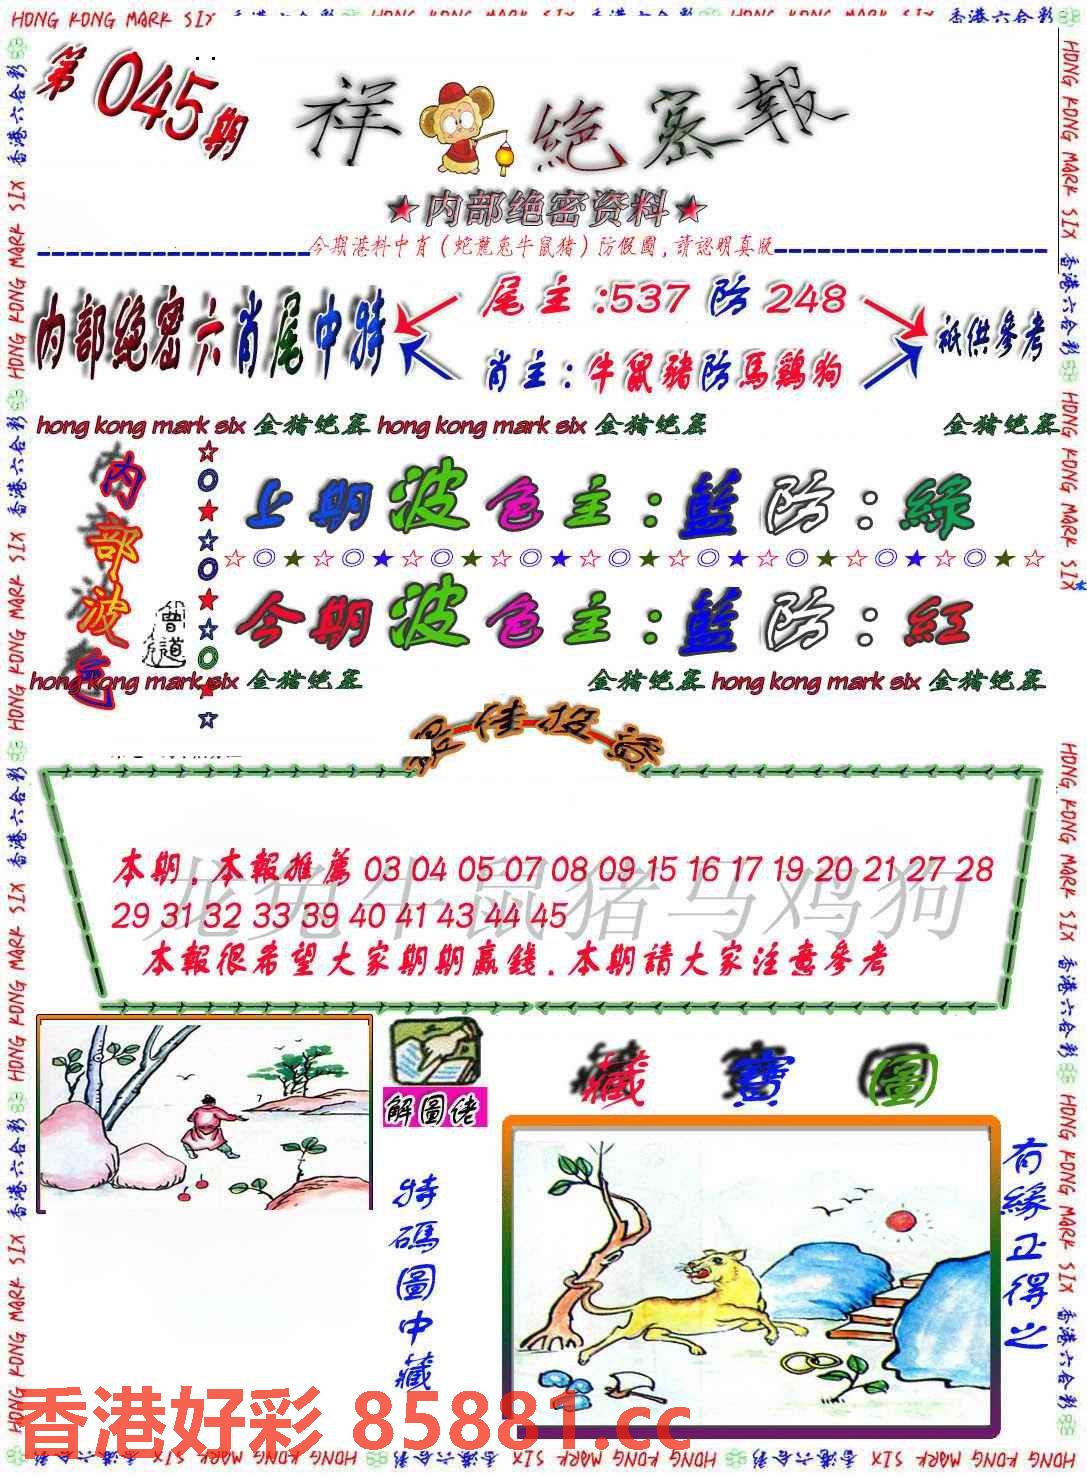 HONG KONG MARK SIX 香港六合彩 HONG KONG MARK SIX 香港六合彩
第045期
祥 絕密報
★内部绝密资料★
今期港料中肖（蛇龍兔牛鼠猪）防假圖,請認明真版
内部絕密六肖尾中特
尾主:537 防 248
肖主:牛鼠豬防馬鷄狗
祇供參考
hong kong mark six 金猪绝密 hong kong mark six 金猪绝密 金猪绝密
内部波色
上期波色主:藍防:綠
☆◎★☆◎★☆◎★☆◎★☆◎★☆◎★☆◎★☆◎★☆◎★☆
今期波色主:藍防:紅
曾道
hong kong mark six 金猪绝密 金猪绝密 hong kong mark six 金猪绝密
最佳投資
龙兔牛鼠猪马鸡狗
本期,本報推薦 03 04 05 07 08 09 15 16 17 19 20 21 27 28
29 31 32 33 39 40 41 43 44 45
本報很希望大家期期贏錢.本期請大家注意參考
解圖佬
藏寶圖
特碼圖中藏
有緣正得之
香港好彩 85881.cc